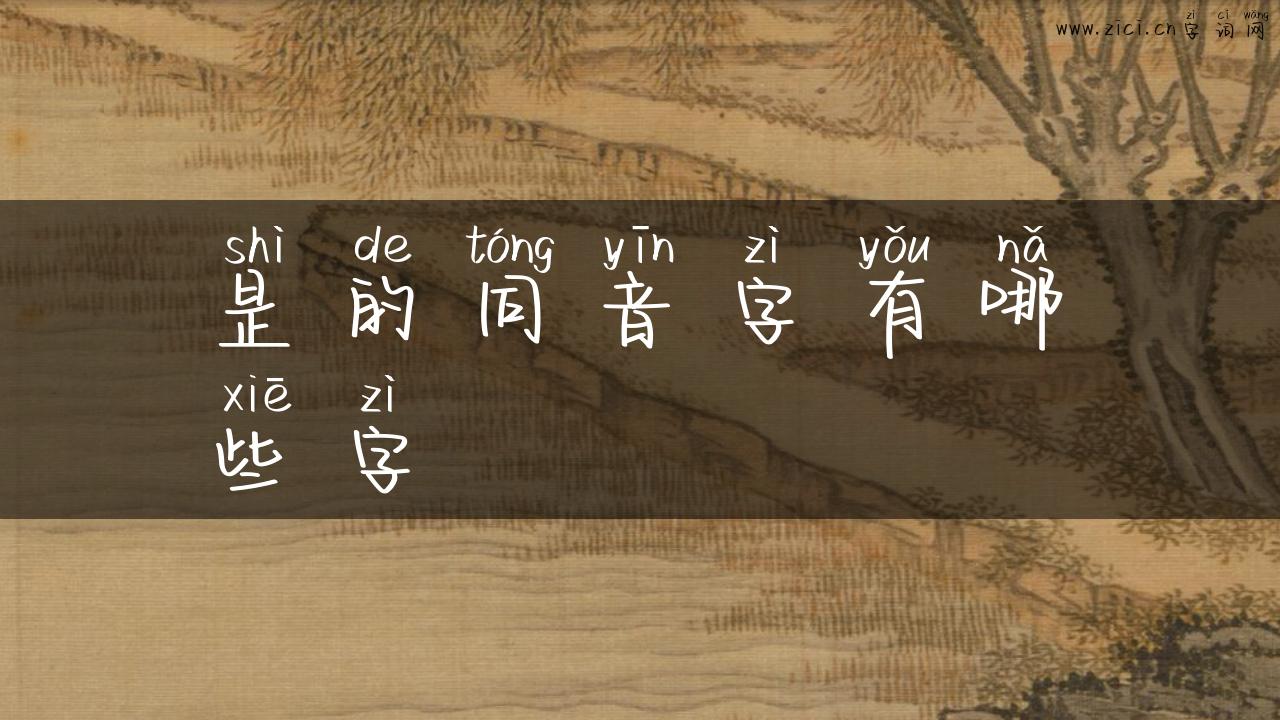 zì cí wǎng
www.zici.cn字词网
shì de tóng yīn zì yǒu nǎ
是的同音字有哪
xiē zì
些字